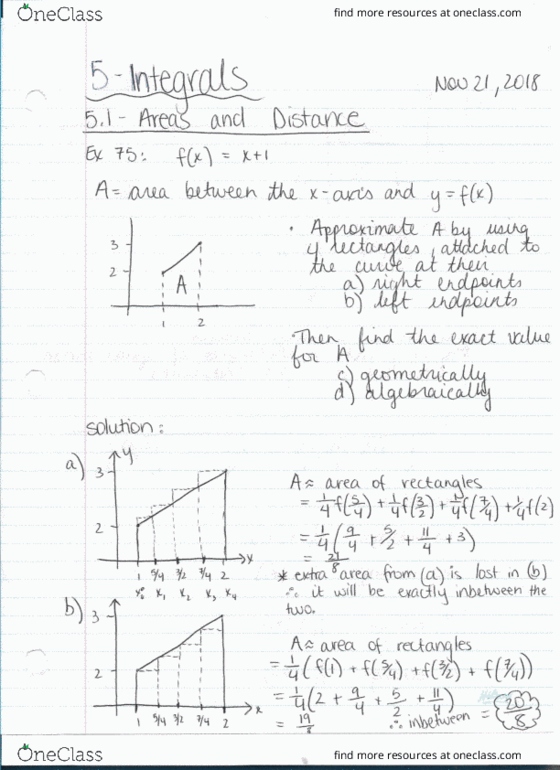 OneClass
find more resources at oneclass.com
5-Integrals
Nov 21, 2018
5.1- Areas and Distance
Ex 75: f(x) = x+1
A= area between the x-axis and y=f(x)
3
2
A
1 2
· Approximate A by using
4 rectangles, attached to
the curve at their
a) right endpoints
b) left endpoints
·Then find the exact value
for A
c) geometrically
d) algebraically
solution:
a)
y
3
2
x
1 5/4 3/2 7/4 2
x₀ x₁ x₂ x₃ x₄
A≈ area of rectangles
= 1/4 f(5/4) + 1/4 f(3/2) + 1/4 f(7/4) + 1/4 f(2)
= 1/4 (9/4 + 5/2 + 11/4 + 3)
= 21/8
* extra area from (a) is lost in (b)
∴ it will be exactly inbetween the
two.
b)
3
2
x
1 5/4 3/2 7/4 2
A≈ area of rectangles
= 1/4 (f(1) + f(5/4) + f(3/2) + f(7/4))
= 1/4 (2 + 9/4 + 5/2 + 11/4)
= 19/8
∴ inbetween = 20/8
OneClass
find more resources at oneclass.com